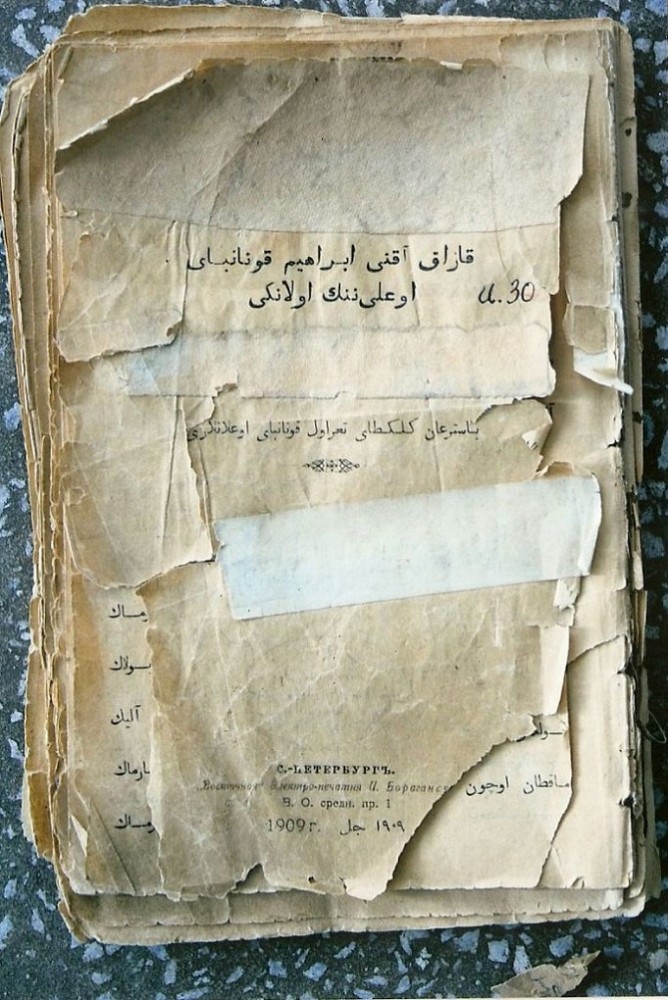 قازاق آقنى ابراهيم قونانباى
اوعلى‌ننك اولانكى
И. 30
باسترعان كلكطاى تعراول قونانباى اوعلانلارى
يماك
سولاك
آليك
ارماك
رماك
سوله
ماقطان اوچون
С.-ПЕТЕРБУРГЪ.
„Восточная“ Электро-печатня И. Бораганск
В. О. средн. пр. 1
1909 г. جل ١٩٠٩